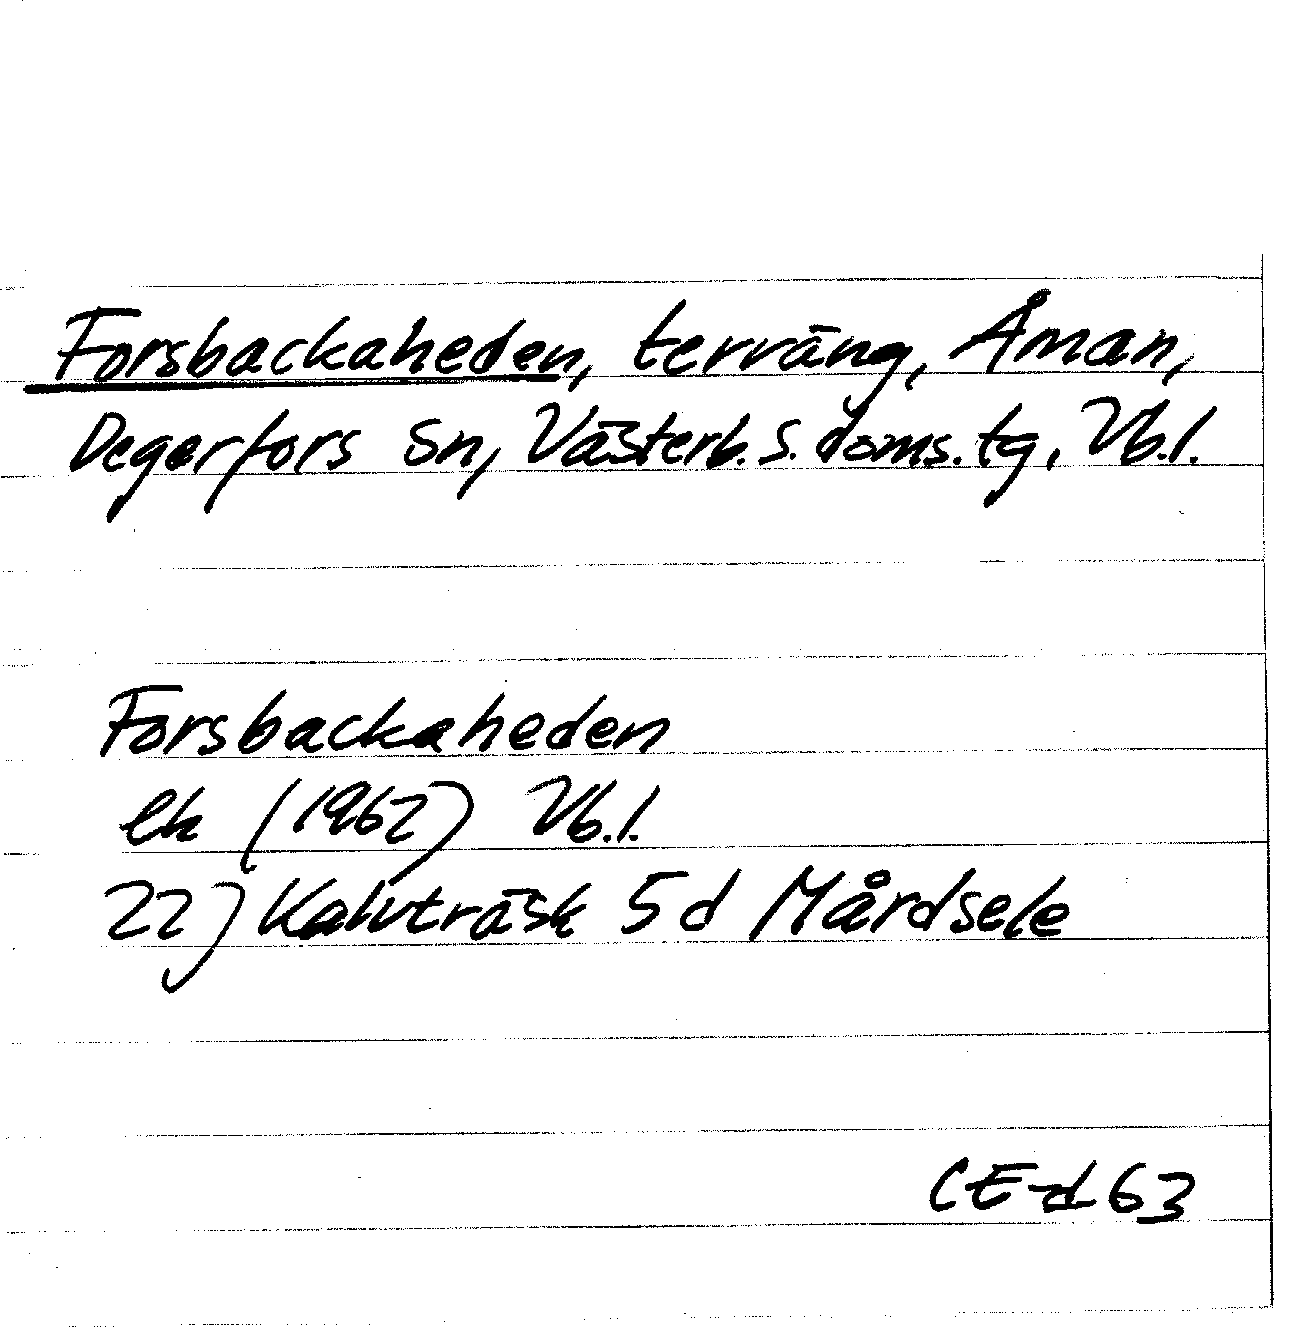 Forsbackaheden, terräng, Åman,
Degerfors sn, Västerb. s. doms. tg, Vb.l.
Forsbackaheden
ek (1962) Vb.l.
22J Kalvträsk 5d Mårdsele
CE-d 63